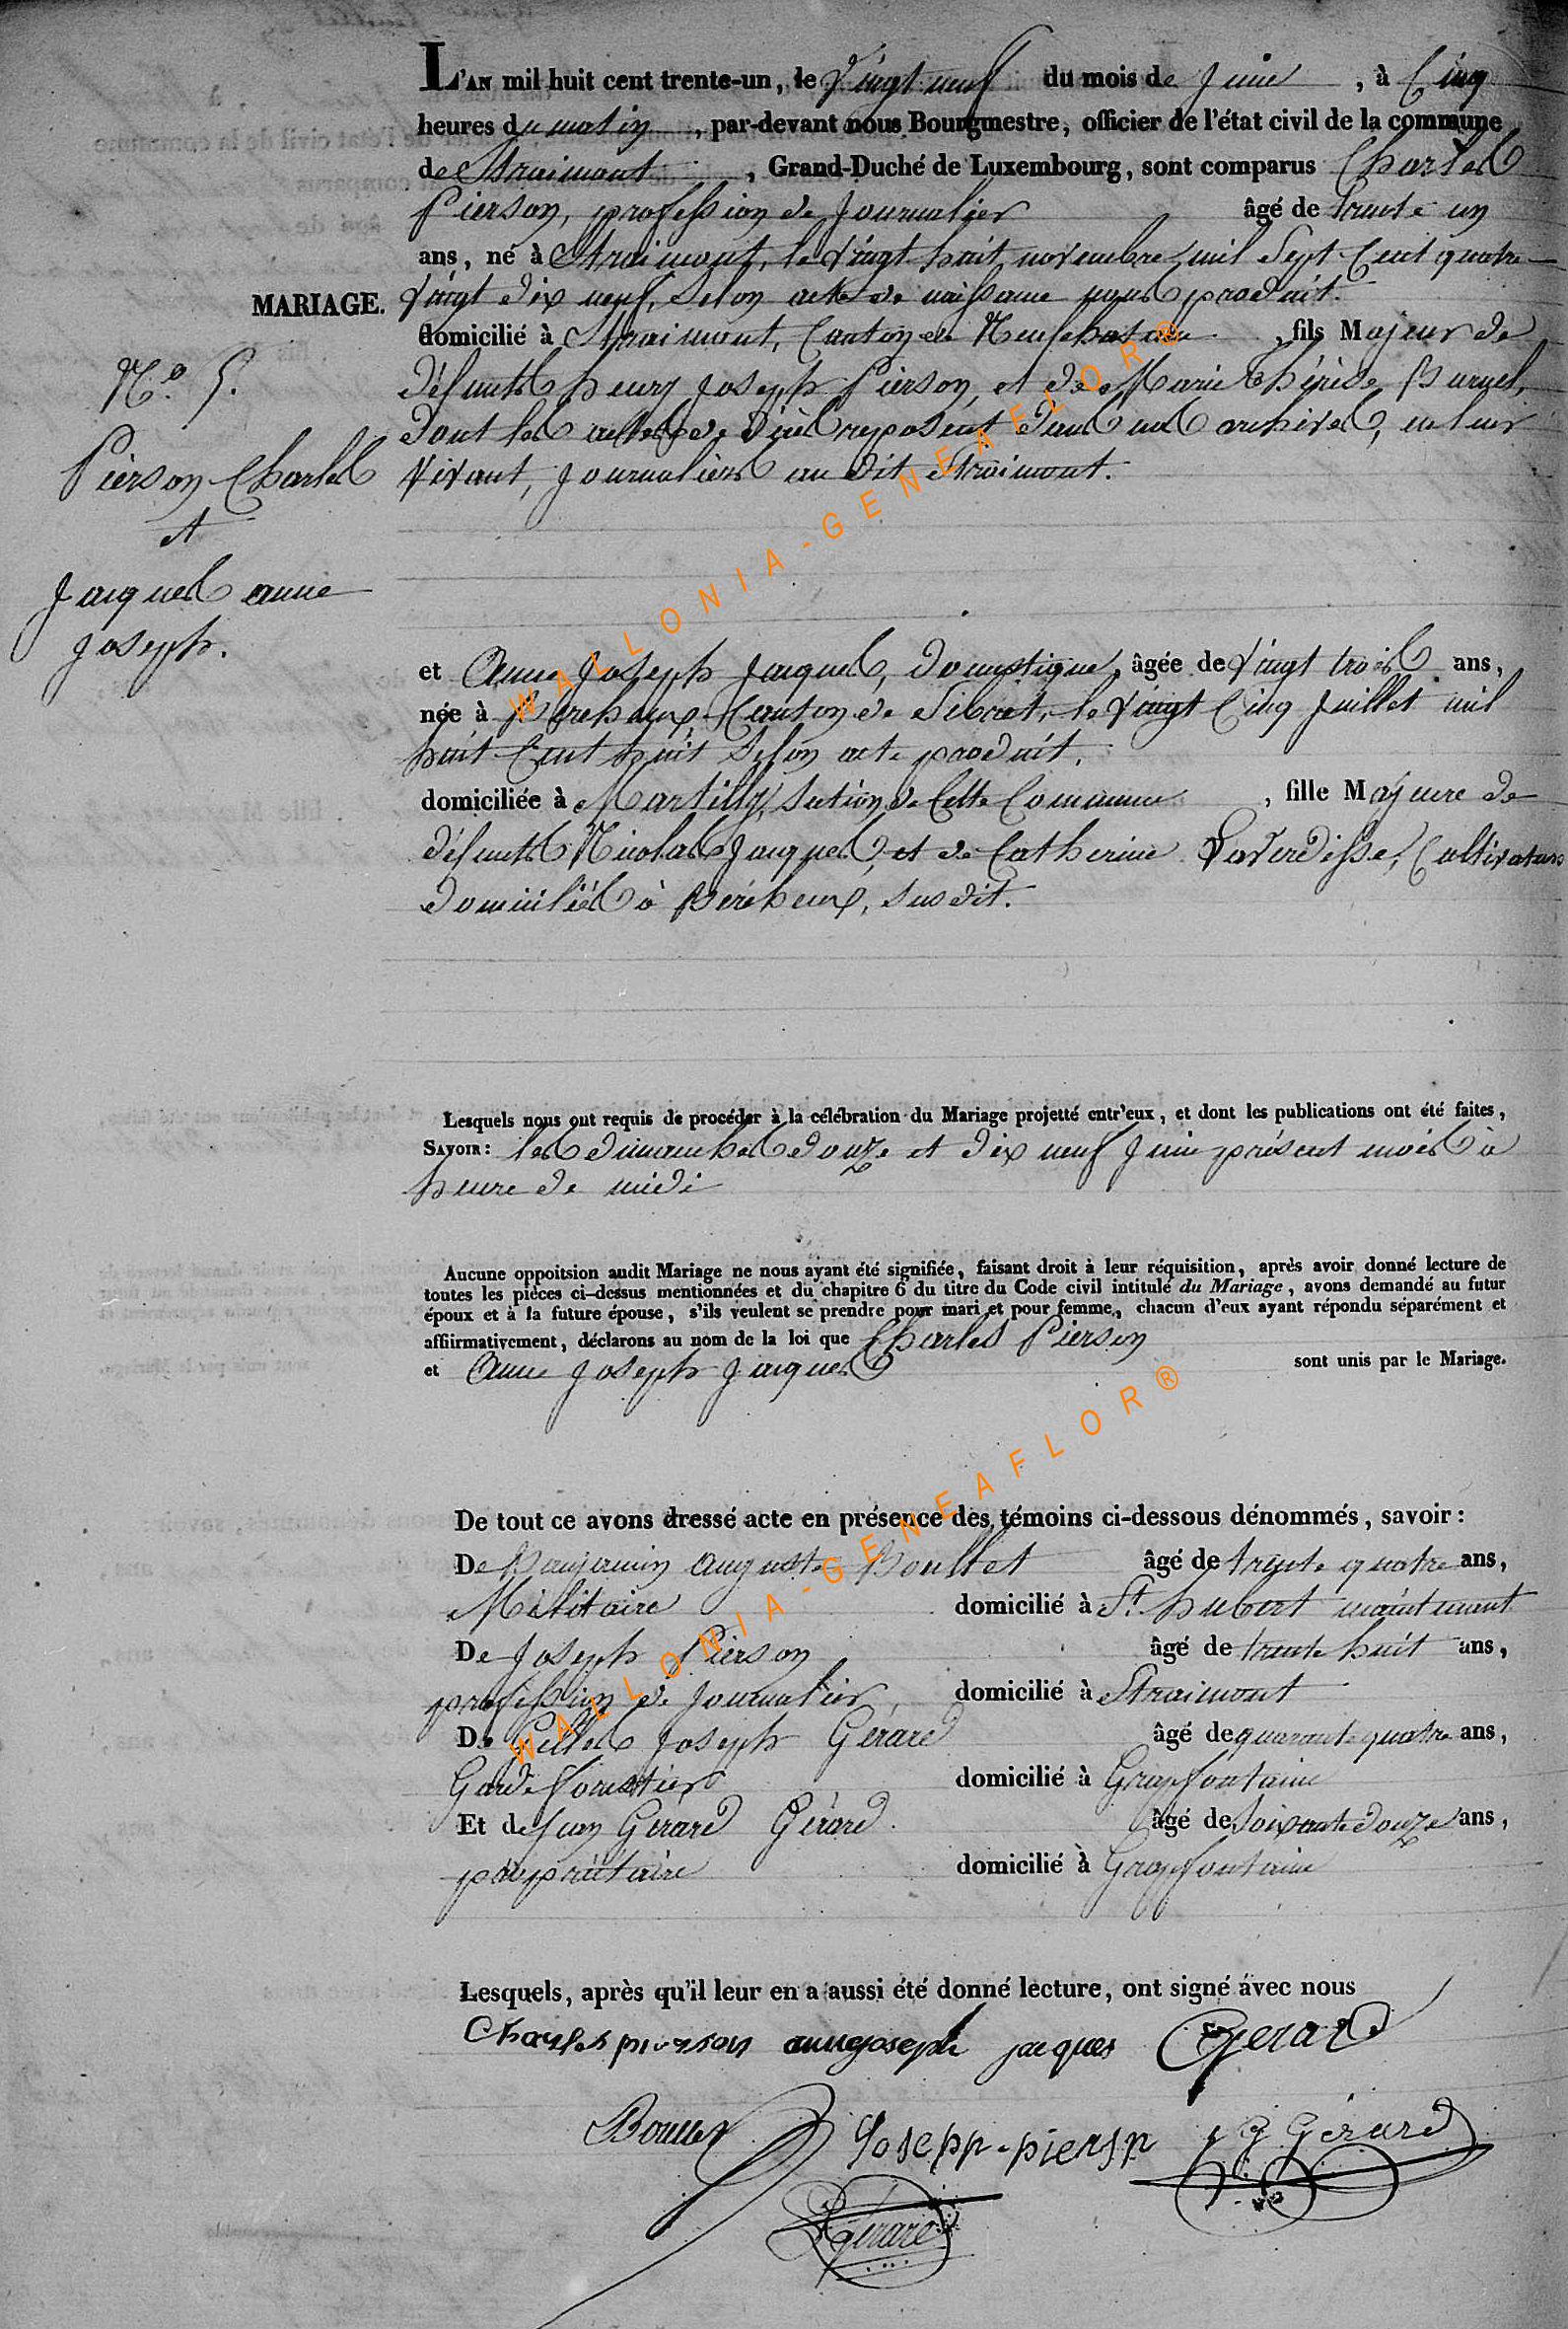 L'AN mil huit cent trente-un, le Vingt neuf du mois de Juin, à Cinq
heures du matin, par-devant nous Bourgmestre, officier de l'état civil de la commune
de Straimont, Grand-Duché de Luxembourg, sont comparus Charles
Pierson, profession de Journalier âgé de trente un
ans, né à Straimont, le vingt huit novembre mil Sept Cent quatre
Vingt dix neuf, Selon acte de naissance nous produit.
MARIAGE.
domicilié à Straimont, Canton de Neufchateau, fils Majeur de
N.o 5.
défunts henry Joseph Pierson, et de Marie thérèse Burnel,
dont les actes de décès reposent dans nos archives, en leur
Pierson Charles
vivant, Journaliers au dit Straimont.
et
Jacques anne
Joseph.
et Anne Joseph Jacques, domestique, âgée de Vingt trois ans,
née à Bercheux, Canton de Sibret, le vingt Cinq Juillet mil
huit Cent huit Selon acte produit.
domiciliée à Martilly, Section de Cette Commune, fille Majeure de
défunts Nicolas Jacques, et de Catherine Laverdisse, Cultivateurs
domiciliés à Bércheux, Susdit.
Lesquels nous ont requis de procéder à la célébration du Mariage projetté entr'eux, et dont les publications ont été faites,
SAVOIR: les dimanches douze et dix neuf Juin présent mois à
heure de midi
Aucune oppoitsion audit Mariage ne nous ayant été signifiée, faisant droit à leur réquisition, après avoir donné lecture de
toutes les pièces ci-dessus mentionnées et du chapitre 6 du titre du Code civil intitulé du Mariage, avons demandé au futur
époux et à la future épouse, s'ils veulent se prendre pour mari et pour femme, chacun d'eux ayant répondu séparément et
affiirmativement, déclarons au nom de la loi que Charles Pierson
et Anne Joseph Jacques sont unis par le Mariage.
De tout ce avons dressé acte en présence des témoins ci-dessous dénommés, savoir:
De Banjamin auguste Boullet âgé de trente quatre ans,
Militaire domicilié à St. hubert maintenant
De Joseph Pierson âgé de trente huit ans,
profession de Journalier, domicilié à Straimont
De Gilles Joseph Gérard âgé de quarante quatre ans,
Garde forestier domicilié à Grapfontaine
Et de Jean Gérard Gérard. âgé de Soixante douze ans,
propriétaire domicilié à Grapfontaine
Lesquels, après qu'il leur en a aussi été donné lecture, ont signé avec nous
Charles pierson anne joseph jacques Gerard
Boullet Josepp-piersn J G Gérard
Gérard
WALLONIA-GENEAFLOR®
WALLONIA-GENEAFLOR®